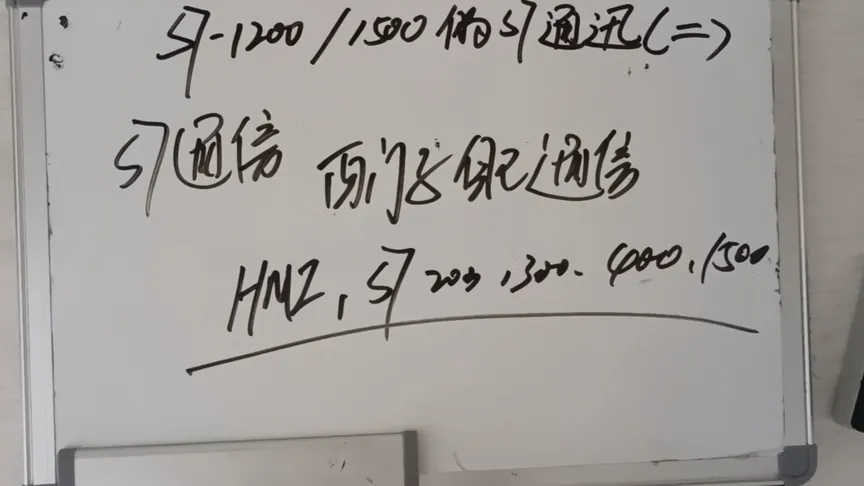 S7-1200/1500的S7通讯(二)
S7通信 西门子自己通信
HMI, S7 200, 300、400、1500